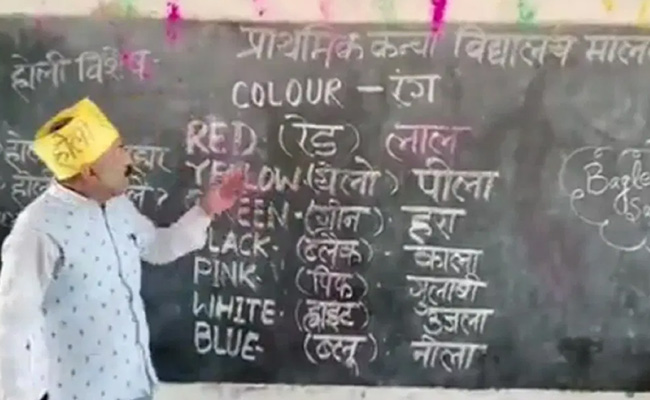 प्राथमिक कन्या विद्यालय माल
होली विशेष
COLOUR - रंग
RED. (रेड) लाल
YELLOW. (यलो) पीला
GREEN - (ग्रीन) हरा
BLACK. (ब्लैक) काला
PINK. (पिंक) गुलाबी
WHITE. (ह्वाइट) उजला
BLUE. (ब्लू). नीला
होली